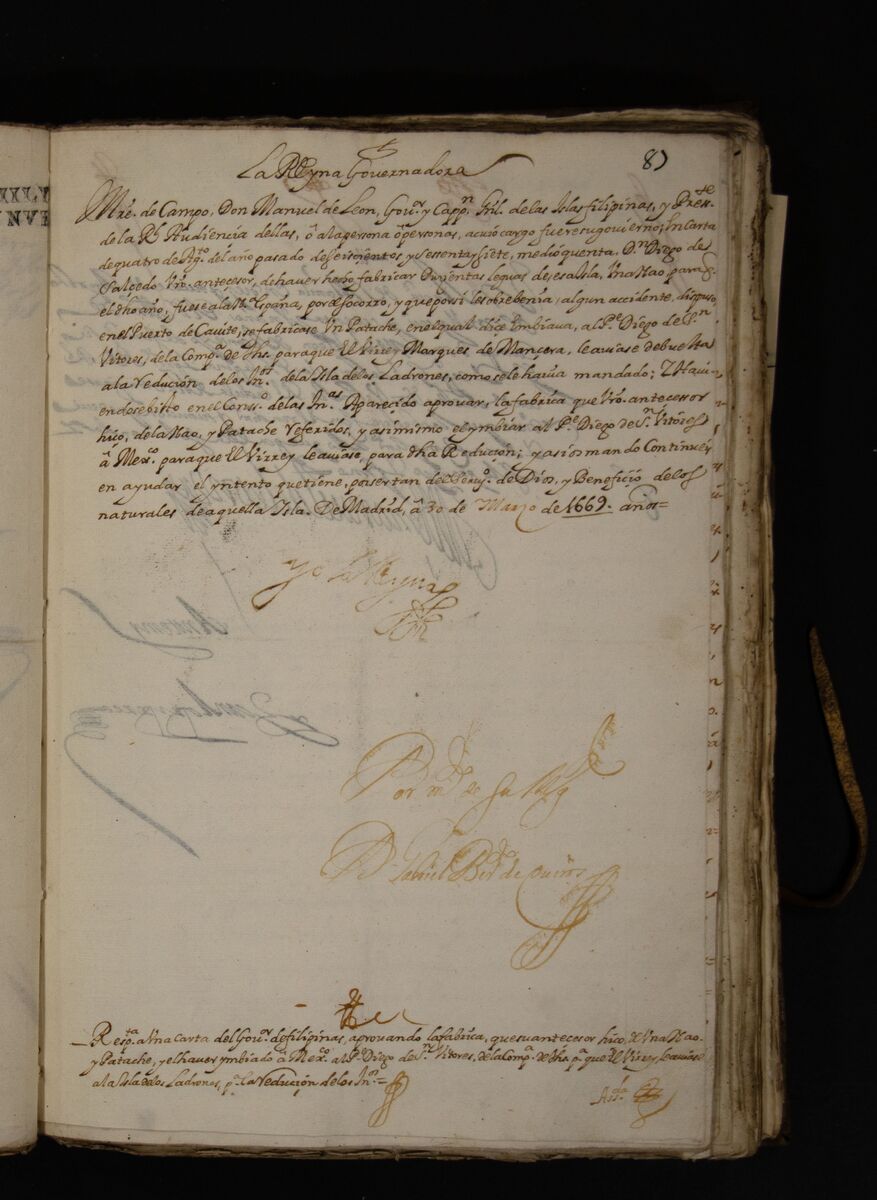 87
La Reyna Governadora
Mre. de Campo, Don Manuel de Leon, Gour. y Cappn. Gral. de las Islas filipinas, y Preste.
de la Rl. Audiencia dellas, ô ala persona ô personas, a cuio cargo fuere su gouierno; En carta
de quatro de Agto. del año pasado de seiscientos y sessenta y siete, me dio quenta, Dn. Diego de
Salçedo Vro. antecesor, de hauer hecho fabricar Ducientas leguas de esa Isla, Una Nao para q.
el dho año, fuese a la Na. España, por el socorro, y que por si le sobrebenia, algun accidente, dispuso,
en el Puerto de Cauite, se fabricase Un Patache, en el qual dice embiaua, al Pe. Diego de Sn.
Vitores, de la Compa. de Jhs. para que El Virrey Marques de Mancera, le auiase de buelta
a la redución de los Inos. de la Isla de los Ladrones, como se le hauia mandado; Y Haui-
endose bisto en el Conso. de las Inas. A parecido aprouar, la fabrica que Vro. antecesor
hiço, de la Nao, y Patache referidos, y asimismo el ymbiar al Pe. Diego de Sn. Vitores
â Mexo. para que El Virrey le auiase, para dha Reduçión; y asi os mando Continueis
en ayudar el yntento que tiene, por ser tan del Seruo. de Dios, y Beneficio de los
naturales de aquella Isla. De Madrid, â 30 de Março de 1669. años=
Yo la Reyna
Por mdo. de su Mgd.
Dn. Gabriel Berdo. de Quiros
Respta. a Una carta del Gour. de filipinas, aprouando la fabrica, que su antecesor hiço, de Una Nao.
y Patache, y el hauer ymbiado â Mexo. al Pe. Diego de Sn. Vitores, de la Compa. de Jhs pa. que El Virrey le auiase
a la Isla de los Ladrones, pa. la reduçión de los Inos.=
Assda.